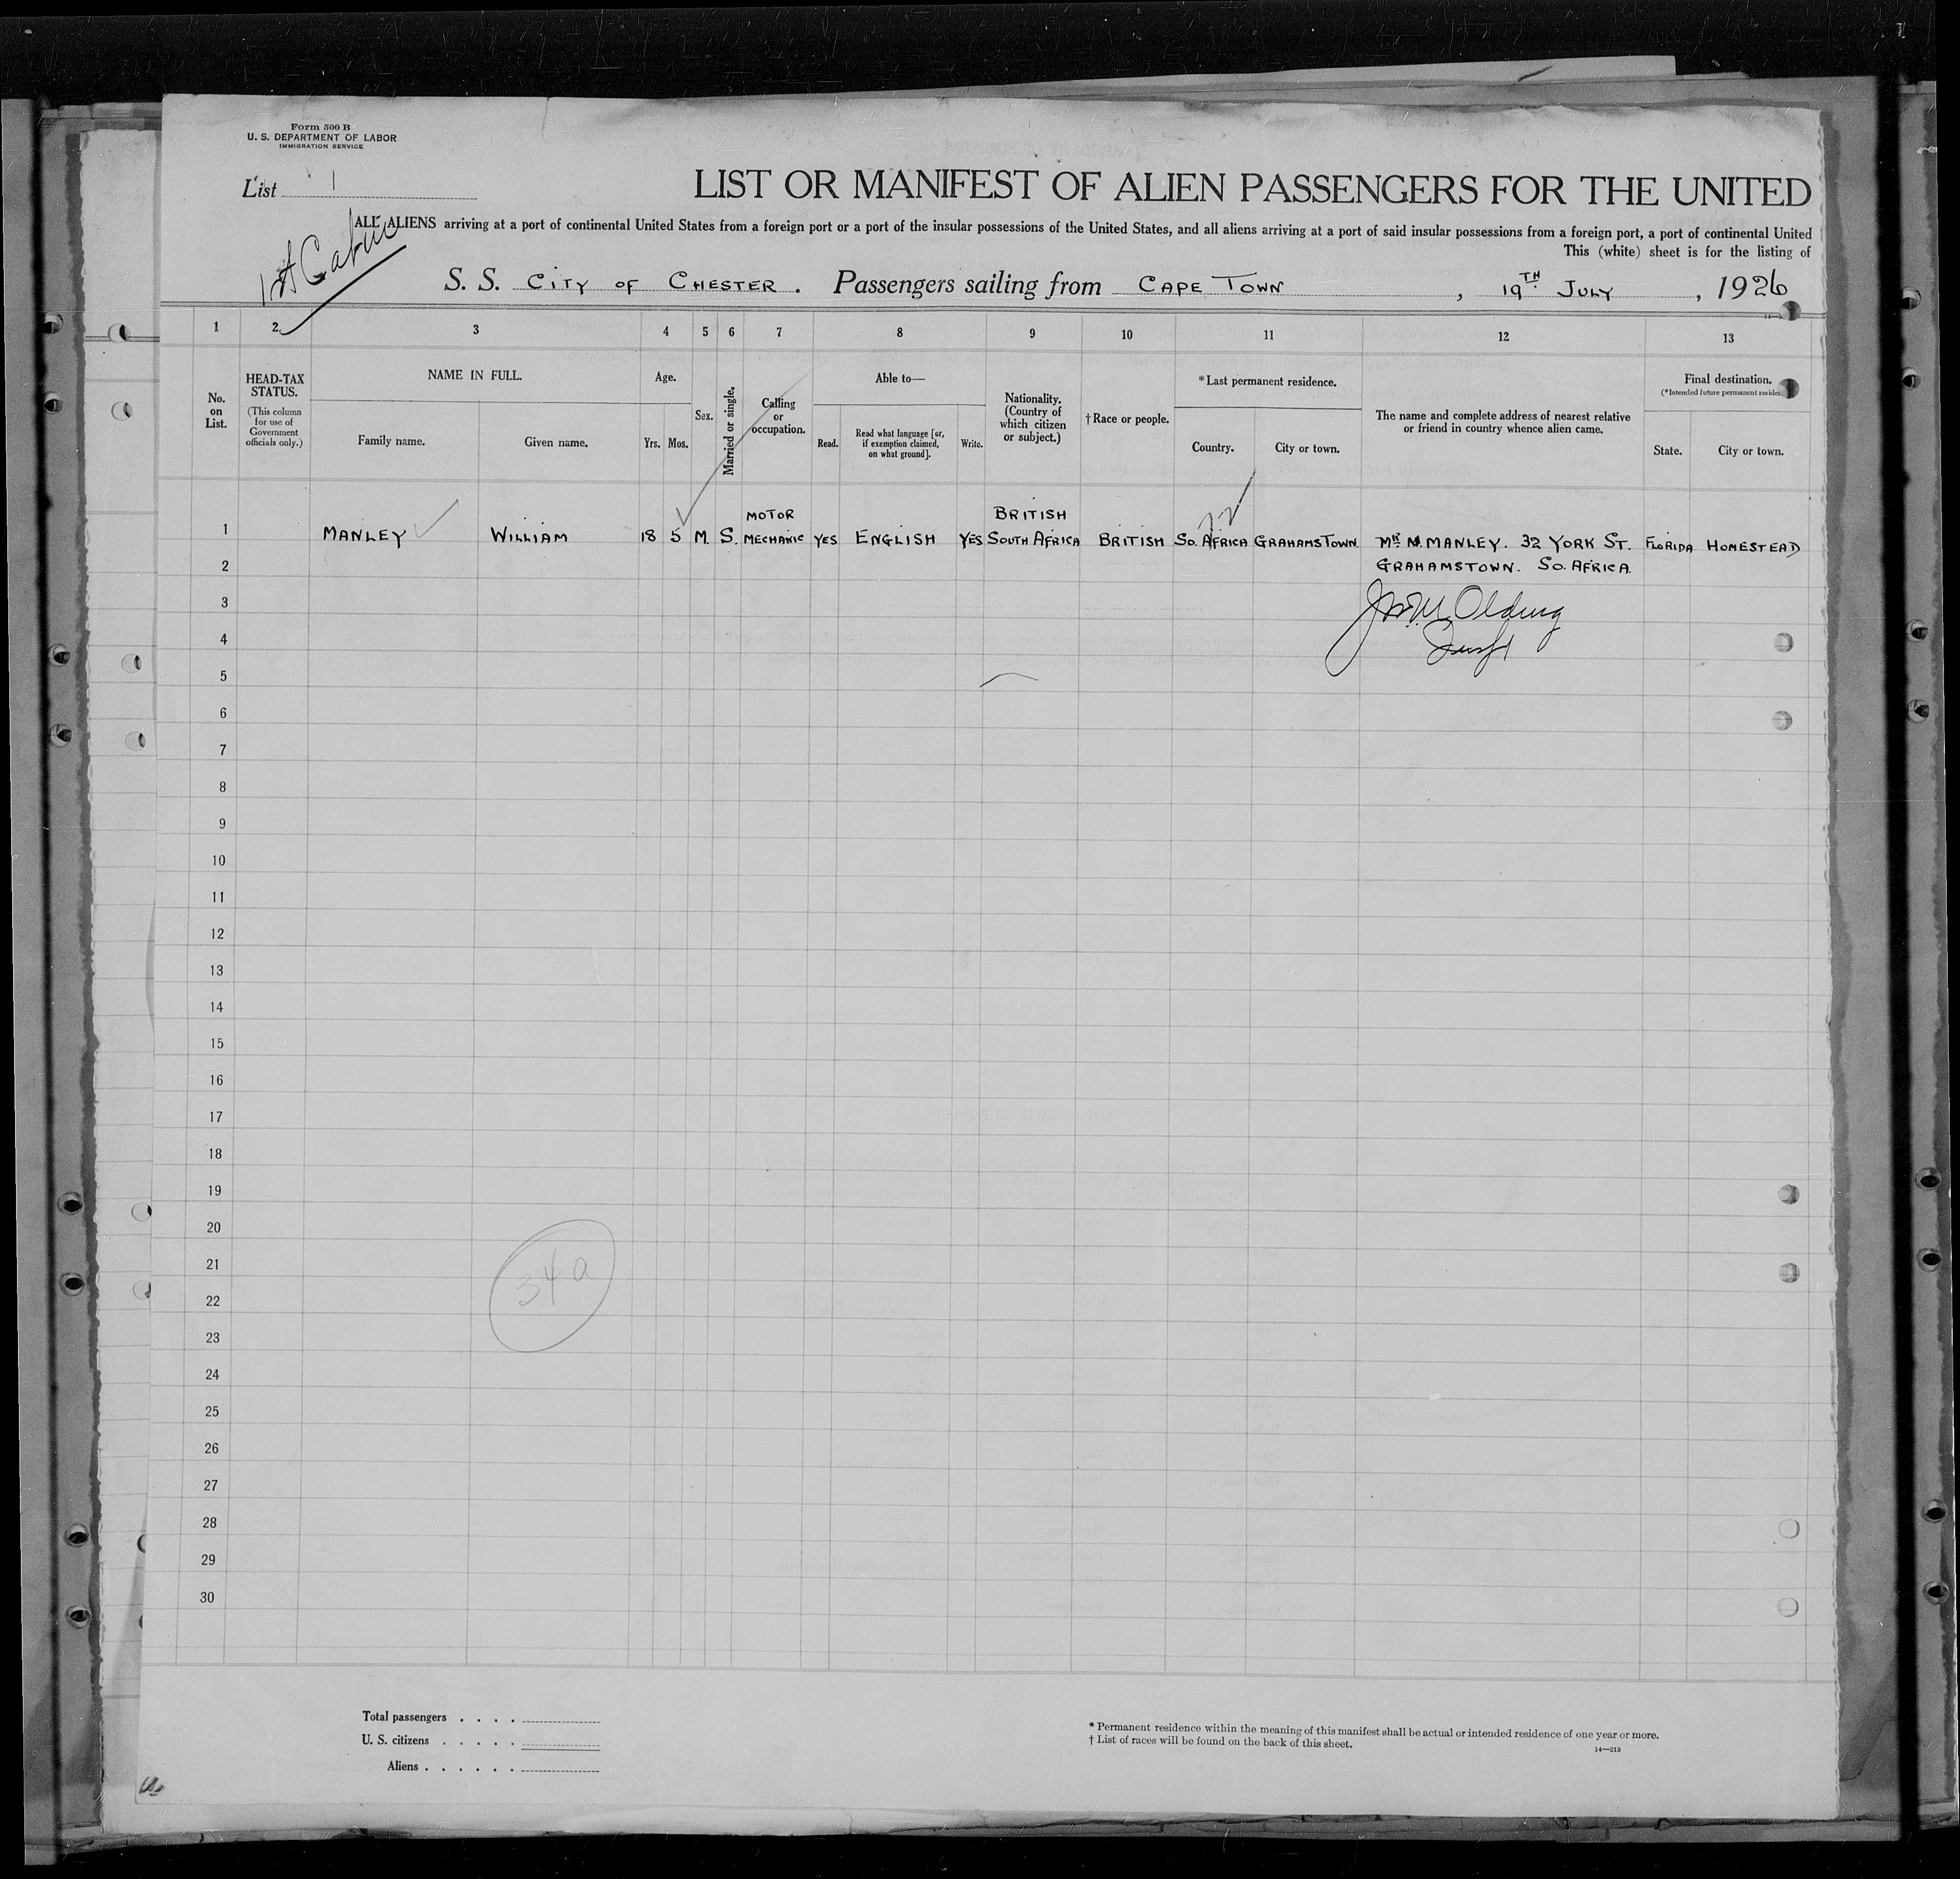 Form 500 B
U. S. DEPARTMENT OF LABOR
IMMIGRATION SERVICE
List 1
LIST OR MANIFEST OF ALIEN PASSENGERS FOR THE UNITED
ALL ALIENS arriving at a port of continental United States from a foreign port or a port of the insular possessions of the United States, and all aliens arriving at a port of said insular possessions from a foreign port, a port of continental United
This (white) sheet is for the listing of
1st Cabin
S. S. CITY OF CHESTER. Passengers sailing from CAPE TOWN, 19TH JULY, 1926
1 2 3 4 5 6 7 8 9 10 11 12 13
No. on List.
HEAD-TAX STATUS.
(This column for use of Government officials only.)
NAME IN FULL.
Family name.
Given name.
Age.
Yrs. Mos.
Sex.
Married or single.
Calling or occupation.
Able to—
Read.
Read what language [or, if exemption claimed, on what ground].
Write.
Nationality. (Country of which citizen or subject.)
† Race or people.
*Last permanent residence.
Country.
City or town.
The name and complete address of nearest relative or friend in country whence alien came.
Final destination.
(*Intended future permanent residen
State.
City or town.
1 MANLEY WILLIAM 18 5 M. S. MOTOR MECHANIC YES ENGLISH YES BRITISH SOUTH AFRICA BRITISH SO. AFRICA GRAHAMSTOWN. MR N. MANLEY. 32 YORK ST. FLORIDA HOMESTEAD
2 GRAHAMSTOWN. SO. AFRICA.
3
4
5
6
7
8
9
10
11
12
13
14
15
16
17
18
19
20
21
22
23
24
25
26
27
28
29
30
34a
Total passengers . . . .
U. S. citizens . . . . .
Aliens . . . . . .
* Permanent residence within the meaning of this manifest shall be actual or intended residence of one year or more.
† List of races will be found on the back of this sheet.
14—213